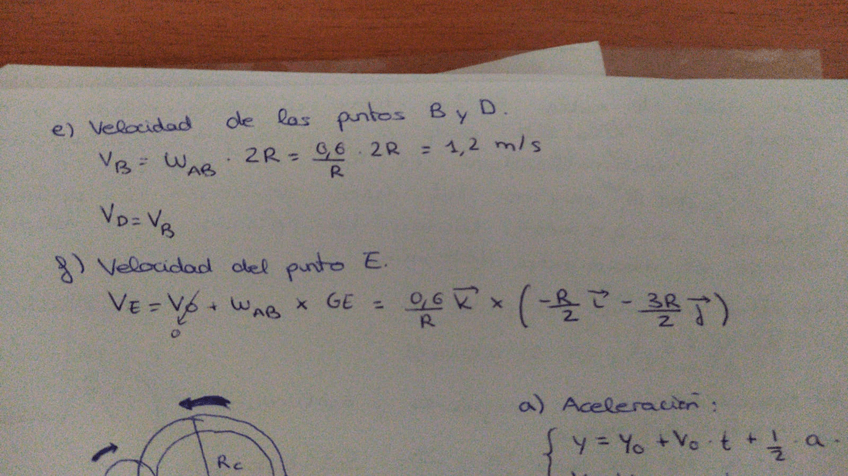 e) Velocidad de los puntos B y D.
V_B = W_AB · 2R = 0,6/R · 2R = 1,2 m/s
V_D = V_B
f) Velocidad del punto E.
V_E = V_G + W_AB × GE = 0,6/R k⃗ × (-R/2 i⃗ - 3R/2 j⃗)
0
a) Aceleración:
y = y_0 + V_0 · t + 1/2 · a ·
R_c